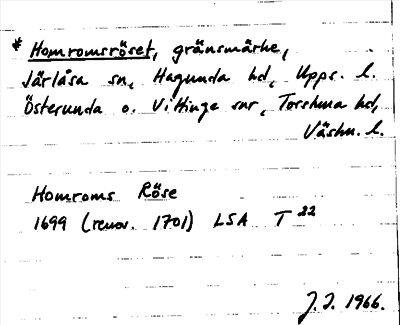 * Homromsröset, gränsmärke,
Järlåsa sn, Hagunda hd, Upps. l.
Österunda o. Vittinge snr, Torstuna hd,
Västm. l.
Homroms Röse
1699 (renov. 1701) LSA T 22
J. I. 1966.